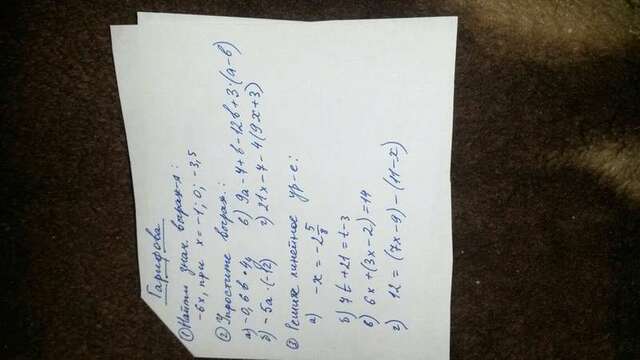 Гарифова
① Найти знач. выраж-я:
-6x, при x = -1; 0; -3,5
② Упростите выраж.:
а) -0,6b · 4y
б) -5a · (-b)
в) 9a - 4 + b - 12b + 3 · (a - b)
г) 21x - 7 - 4(9x + 3)
③ Решить линейное ур-е:
а) -x = -2 5/8
б) 4t + 21 = t - 3
в) 6x + (3x - 2) = 14
г) 12 = (7x - 9) - (11 - x)